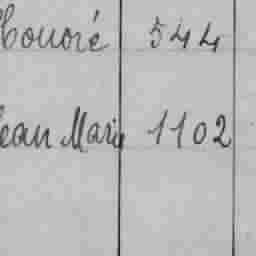 Honoré 544
Jean Marie 1102